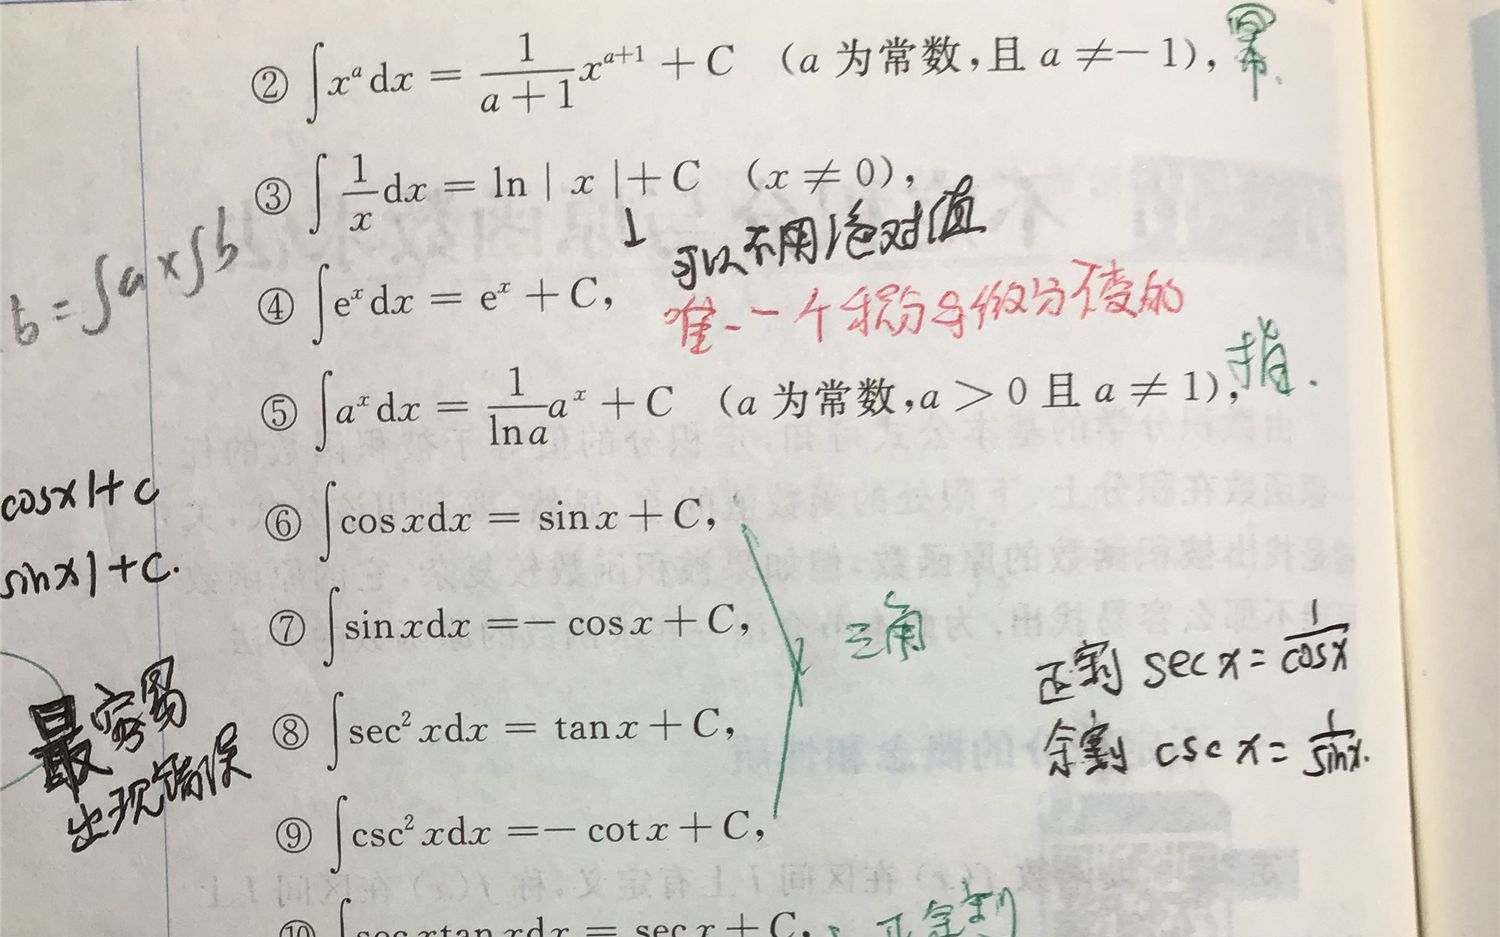 ② ∫xᵃdx = 1/(a+1) xᵃ⁺¹ + C （a 为常数，且 a ≠ −1），幂.
③ ∫1/x dx = ln | x | + C （x ≠ 0），
可以不用绝对值
b = ∫a × ∫b
④ ∫eˣdx = eˣ + C，
唯一一个积分与微分不变的
⑤ ∫aˣdx = 1/ln a aˣ + C （a 为常数，a > 0 且 a ≠ 1），指.
cosx|+c
⑥ ∫cos xdx = sin x + C，
sinx|+C.
⑦ ∫sin xdx = − cos x + C，
三角
正割 sec x = 1/cosx
最容易
出现错误
⑧ ∫sec² xdx = tan x + C，
余割 csc x = 1/sinx.
⑨ ∫csc² xdx = − cot x + C，
⑩ ∫sec xtan xdx = sec x + C，正割